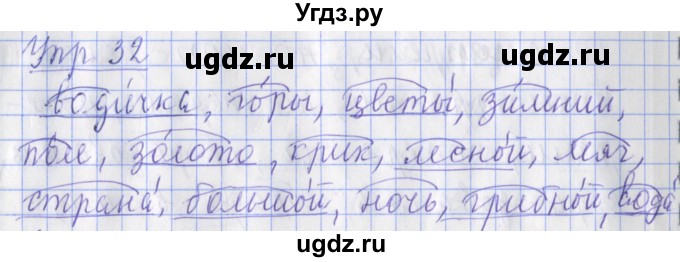 Угдз.ру
Упр 32
ugdz.ru ugdz.ru
води́чка, го́ры, цветы́, зи́мний,
по́ле, зо́лото, крик, лесно́й, мяч,
страна́, большо́й, ночь, грибно́й, вода́
ugdz.ru ugdz.ru
ugdz.ru